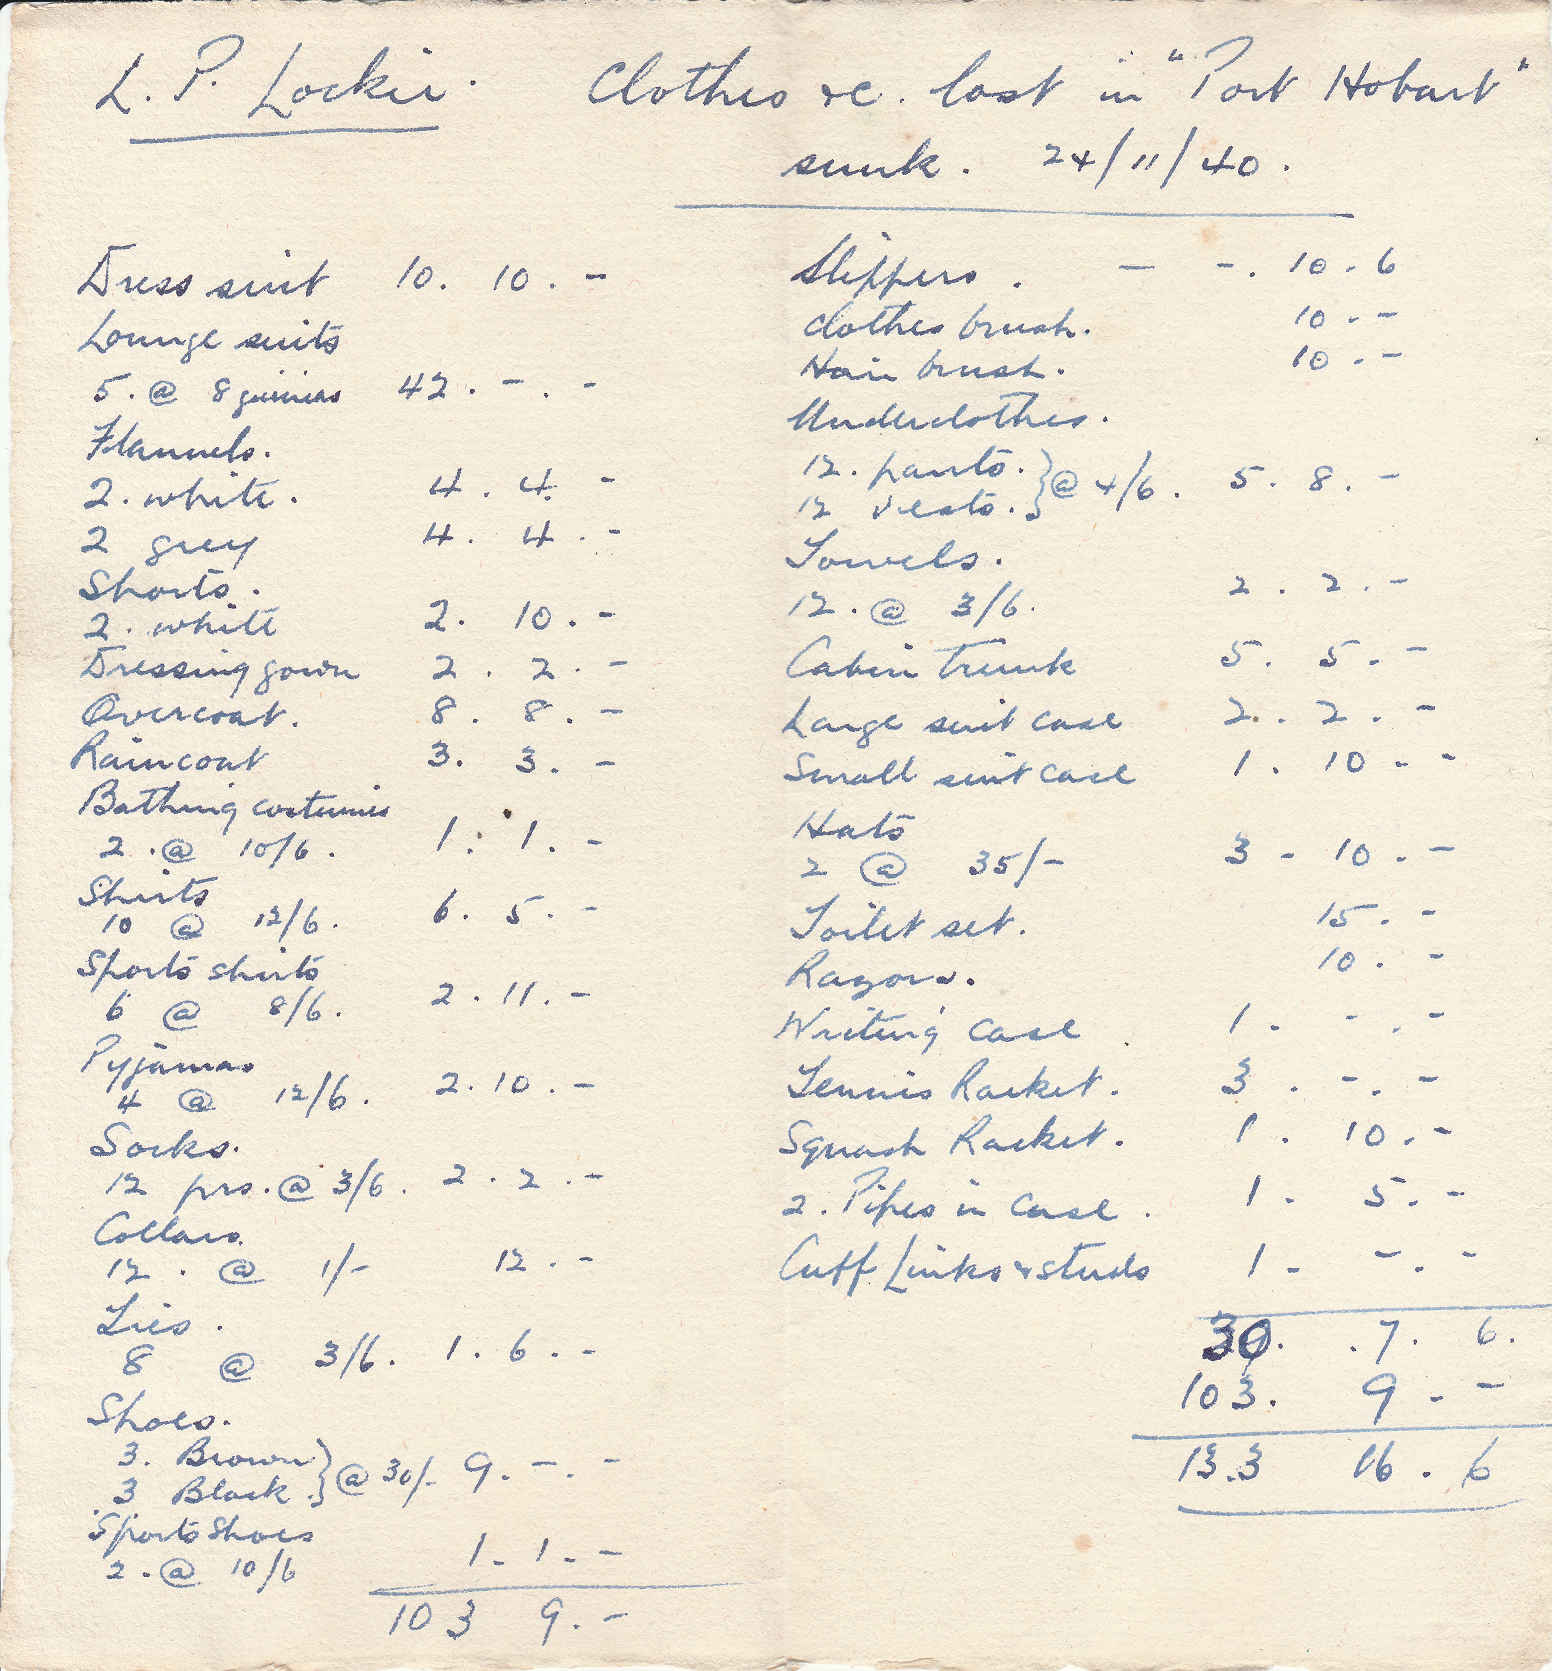 L. P. Lockie. Clothes &c. lost in "Port Hobart"
sunk. 24/11/40.
Dress suit 10. 10. -
Lounge suits
5. @ 8 guineas 42. -. -
Flannels.
2. white. 4. 4. -
2 grey 4. 4. -
Shorts.
2. white 2. 10. -
Dressing gown 2. 2. -
Overcoat. 8. 8. -
Raincoat 3. 3. -
Bathing costumes
2. @ 10/6. 1. 1. -
Shirts
10 @ 12/6. 6. 5. -
Sports shirts
6 @ 8/6. 2. 11. -
Pyjamas
4 @ 12/6. 2. 10. -
Socks.
12 prs. @ 3/6. 2. 2. -
Collars.
12. @ 1/- 12. -
Ties.
8 @ 3/6. 1. 6. -
Shoes.
3. Brown } @ 30/- 9. -. -
3 Black.
Sports Shoes
2. @ 10/6 1. 1. -
103 9. -
Slippers. - -. 10. 6
Clothes brush. 10. -
Hair brush. 10. -
Underclothes.
12. pants. } @ 4/6. 5. 8. -
12 vests.
Towels.
12. @ 3/6. 2. 2. -
Cabin Trunk 5. 5. -
Large suit case 2. 2. -
Small suit case 1. 10. -
Hats
2 @ 35/- 3 - 10. -
Toilet set. 15. -
Razors. 10. -
Writing case 1. -. -
Tennis Racket. 3. -. -
Squash Racket. 1. 10. -
2. Pipes in case. 1. 5. -
Cuff Links & studs 1 - -. -
30. .7. 6.
103. 9. -
133 16. 6